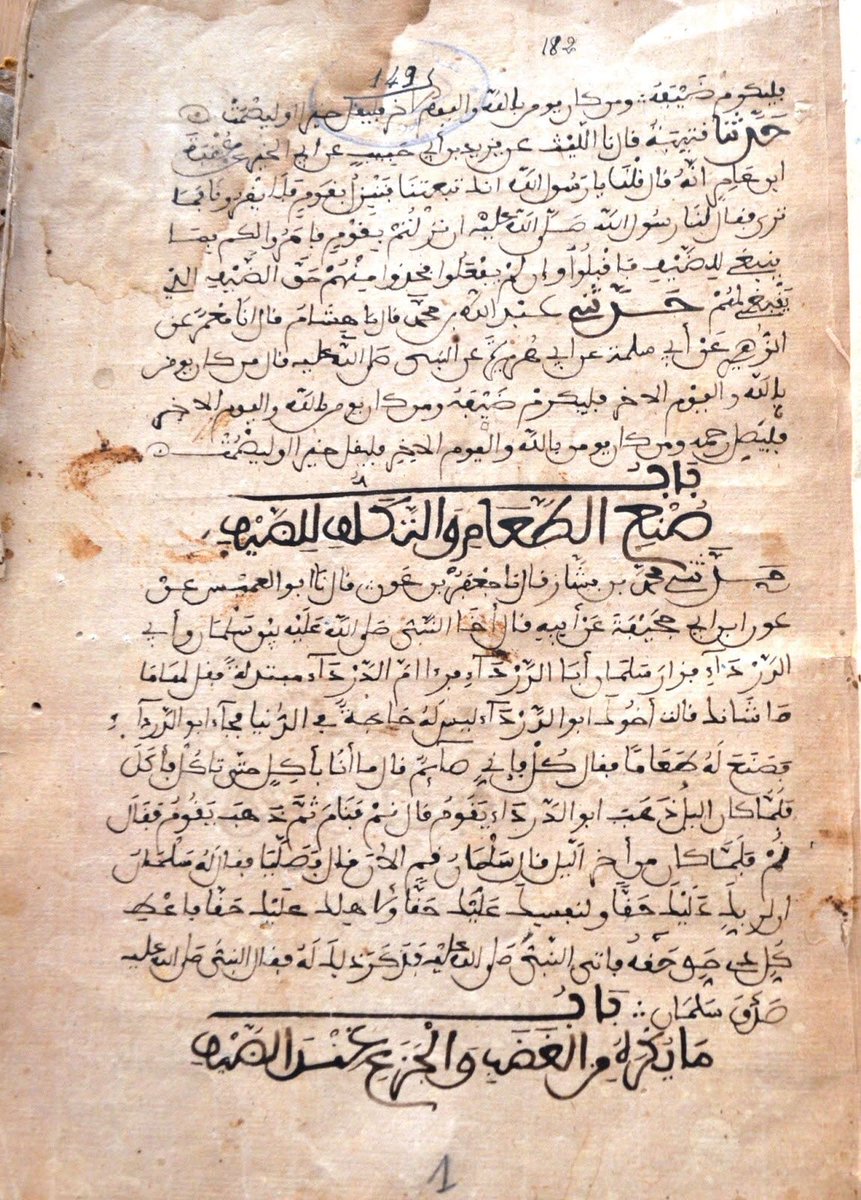 182
149
فليكرم ضيفه ومن كان يومن بالله واليوم الاخر فليقل خيرا او ليصمت
حدثنا قتيبة قال نا الليث عن يزيد بن أبي حبيب عن ابي الخير عن عقبة
ابن عامر انه قال قلنا يا رسول الله انك تبعثنا فننزل بقوم فلا يقرونا فما
ترى فقال لنا رسول الله صلى الله عليه ان نزلتم بقوم فامروا لكم بما
ينبغي للضيف فاقبلوا وان لم يفعلوا فخذوا منهم حق الضيف الذي
ينبغي لهم حدثني عبد الله بن محمد قال نا هشام قال انا معمر عن
الزهري عن أبي سلمة عن ابي هريرة عن النبي صلى الله عليه قال من كان يومن
بالله واليوم الاخر فليكرم ضيفه ومن كان يومن بالله واليوم الاخر
فليصل رحمه ومن كان يومن بالله واليوم الاخر فليقل خيرا او ليصمت
باب
صنع الطعام والتكلف للضيف
حدثني محمد بن بشار قال نا جعفر بن عون قال نا ابو العميس عن
عون ابن ابي جحيفة عن أبيه قال أخا النبي صلى الله عليه بين سلمان وأبي
الدرداء فزار سلمان أبا الدرداء فرءا ام الدرداء مبتذلة فقال لها ما
ما شانك قالت أخوك ابو الدرداء ليس له حاجة في الدنيا فجاء ابو الدرداء
فصنع له طعاما فقال كل فإني صائم قال ما أنا بأكل حتى تاكل فأكل
فلما كان اليل ذهب ابو الدرداء يقوم قال نم فنام ثم ذهب يقوم فقال
نم فلما كان من أخر اليل قال سلمان قم الان قال فصليا فقال له سلمان
ان لربك عليك حقا ولنفسك عليك حقا ولأهلك عليك حقا فاعط
كل ذي حق حقه فاتى النبي صلى الله عليه فذكر ذلك له فقال النبي صلى الله عليه
صدق سلمان باب
ما يكره من الغضب والجزع عند الضيف
1